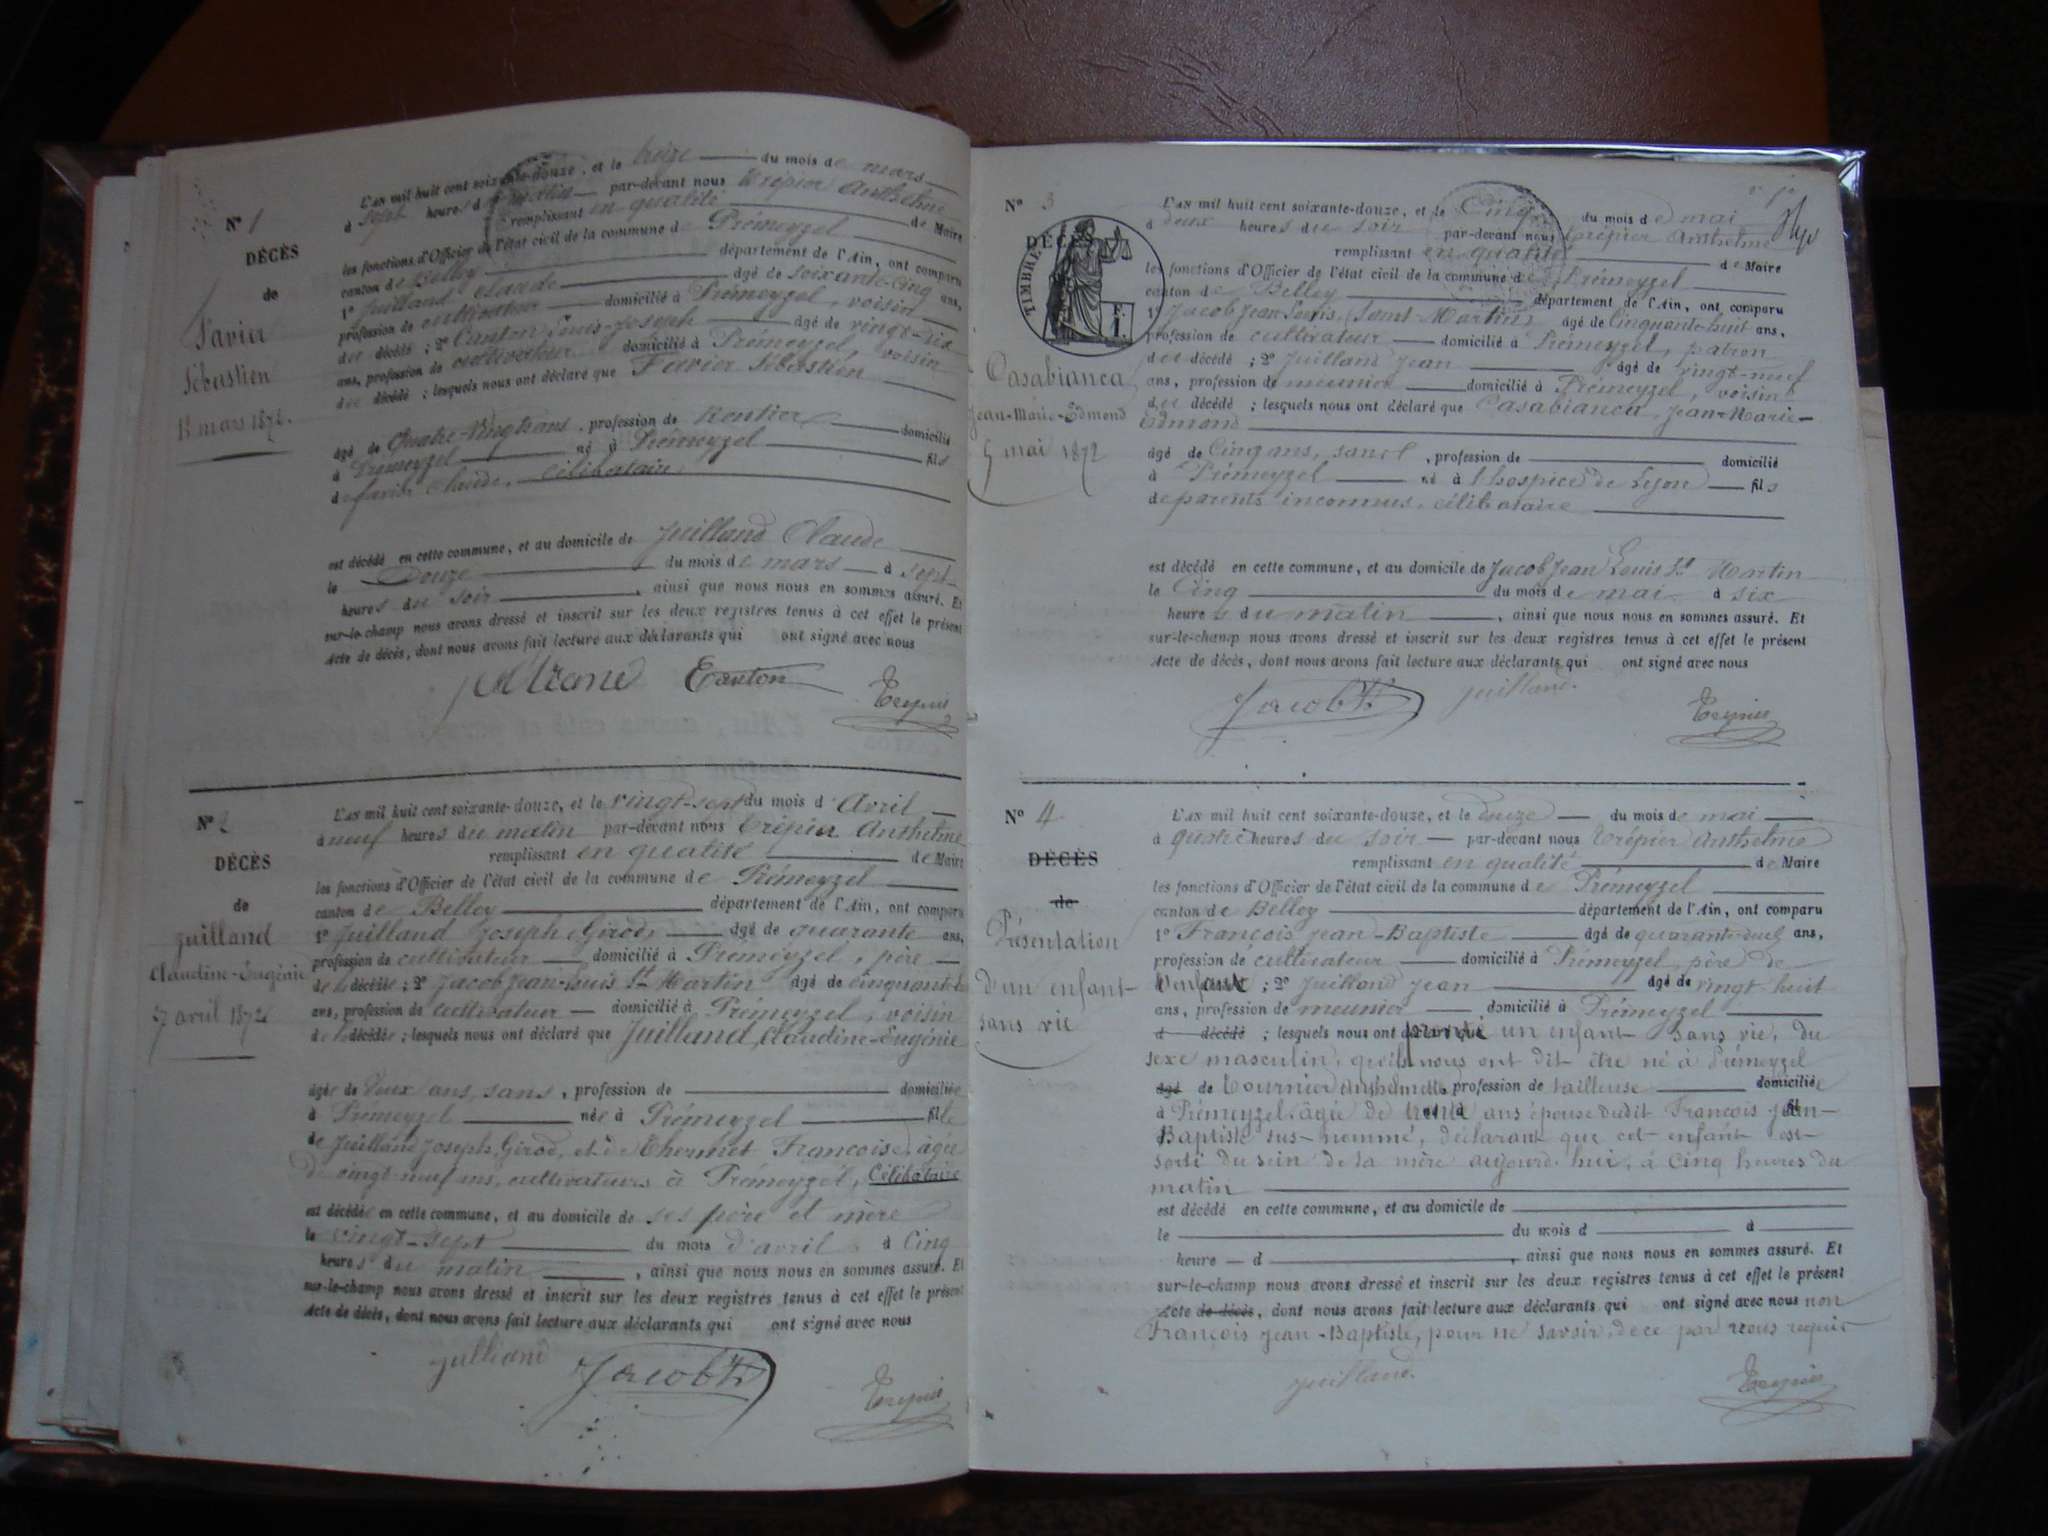 N° 1
DÉCÈS
de
Favier
Sébastien
12 mars 1872.
L'AN mil huit cent soixante-douze, et le treize du mois de mars
à sept heures du matin par-devant nous Trépier Anthelme
remplissant en qualité de Maire
les fonctions d'Officier de l'état civil de la commune de Prémeyzel
canton de Belley département de l'Ain, ont comparu
1° Juilland Claude âgé de soixante-cinq ans,
profession de cultivateur domicilié à Prémeyzel, voisin
du décédé ; 2° Canton Louis-Joseph âgé de vingt-six
ans, profession de cultivateur domicilié à Prémeyzel, voisin
du décédé ; lesquels nous ont déclaré que Favier Sébastien
âgé de Quatre-Vingt ans, profession de Rentier domicilié
à Prémeyzel né à Prémeyzel fils
de favier Claude, célibataire
est décédé en cette commune, et au domicile de Juilland Claude
le Douze du mois de mars à sept
heures du soir, ainsi que nous nous en sommes assuré. Et
sur-le-champ nous avons dressé et inscrit sur les deux registres tenus à cet effet le présent
Acte de décès, dont nous avons fait lecture aux déclarants qui ont signé avec nous
Canton
Trépier
N° 2
DÉCÈS
de
Juilland
Claudine-Eugénie
27 avril 1872
L'AN mil huit cent soixante-douze, et le vingt-sept du mois d'Avril
à neuf heures du matin par-devant nous Trépier Anthelme
remplissant en qualité de Maire
les fonctions d'Officier de l'état civil de la commune de Prémeyzel
canton de Belley département de l'Ain, ont comparu
1° Juilland Joseph Girod âgé de quarante ans,
profession de cultivateur domicilié à Prémeyzel, père
de la décédée ; 2° Jacob Jean-Louis St Martin âgé de cinquante
ans, profession de cultivateur domicilié à Prémeyzel, voisin
de la décédée ; lesquels nous ont déclaré que Juilland Claudine-Eugénie
âgée de deux ans, sans, profession de domiciliée
à Prémeyzel née à Prémeyzel fille
de Juilland Joseph Girod, et de Thermet Françoise, âgée
de vingt-neuf ans, cultivateurs à Prémeyzel, Célibataire
est décédée en cette commune, et au domicile de ses père et mère
le vingt-sept du mois d'avril à Cinq
heures du matin, ainsi que nous nous en sommes assuré. Et
sur-le-champ nous avons dressé et inscrit sur les deux registres tenus à cet effet le présent
Acte de décès, dont nous avons fait lecture aux déclarants qui ont signé avec nous
Juilland Jacob
Trépier
N° 3
DÉCÈS
TIMBRE
F.
1.
Casabianca
Jean-Marie-Edmond
5 mai 1872
L'AN mil huit cent soixante-douze, et le Cinq du mois de mai
à deux heures du soir par-devant nous Trépier Anthelme
remplissant en qualité de Maire
les fonctions d'Officier de l'état civil de la commune de Prémeyzel
canton de Belley département de l'Ain, ont comparu
1° Jacob Jean Louis, Saint-Martin âgé de Cinquante-huit ans,
profession de cultivateur domicilié à Prémeyzel, patron
du décédé ; 2° Juilland Jean âgé de vingt-neuf
ans, profession de meunier domicilié à Prémeyzel, voisin
du décédé ; lesquels nous ont déclaré que Casabianca Jean-Marie-
Edmond
âgé de Cinq ans, sans, profession de domicilié
à Prémeyzel né à l'hospice de Lyon fils
de parents inconnus, célibataire
est décédé en cette commune, et au domicile de Jacob Jean Louis St Martin
le Cinq du mois de mai à six
heures du matin, ainsi que nous nous en sommes assuré. Et
sur-le-champ nous avons dressé et inscrit sur les deux registres tenus à cet effet le présent
Acte de décès, dont nous avons fait lecture aux déclarants qui ont signé avec nous
Jacob Juilland.
Trépier
N° 4
DÉCÈS
de
Présentation
d'un enfant
sans vie
L'AN mil huit cent soixante-douze, et le douze du mois de mai
à quatre heures du soir par-devant nous Trépier Anthelme
remplissant en qualité de Maire
les fonctions d'Officier de l'état civil de la commune de Prémeyzel
canton de Belley département de l'Ain, ont comparu
1° François Jean-Baptiste âgé de quarante-deux ans,
profession de cultivateur domicilié à Prémeyzel, père de
l'enfant ; 2° Juilland Jean âgé de vingt-huit
ans, profession de meunier domicilié à Prémeyzel
d décédé ; lesquels nous ont présenté un enfant sans vie, du
sexe masculin, qu'ils nous ont dit être né à Prémeyzel
âgé de Tournier Anthelmette, profession de tailleuse domiciliée
à Prémeyzel, âgée de trente ans épouse dudit François Jean-
Baptiste sus-nommé, déclarant que cet enfant est
sorti du sein de la mère aujourd'hui, à Cinq heures du
matin
est décédé en cette commune, et au domicile de
le du mois d à
heure d , ainsi que nous nous en sommes assuré. Et
sur-le-champ nous avons dressé et inscrit sur les deux registres tenus à cet effet le présent
Acte de décès, dont nous avons fait lecture aux déclarants qui ont signé avec nous non
François Jean-Baptiste, pour ne savoir, de ce par nous requis
Juilland.
Trépier